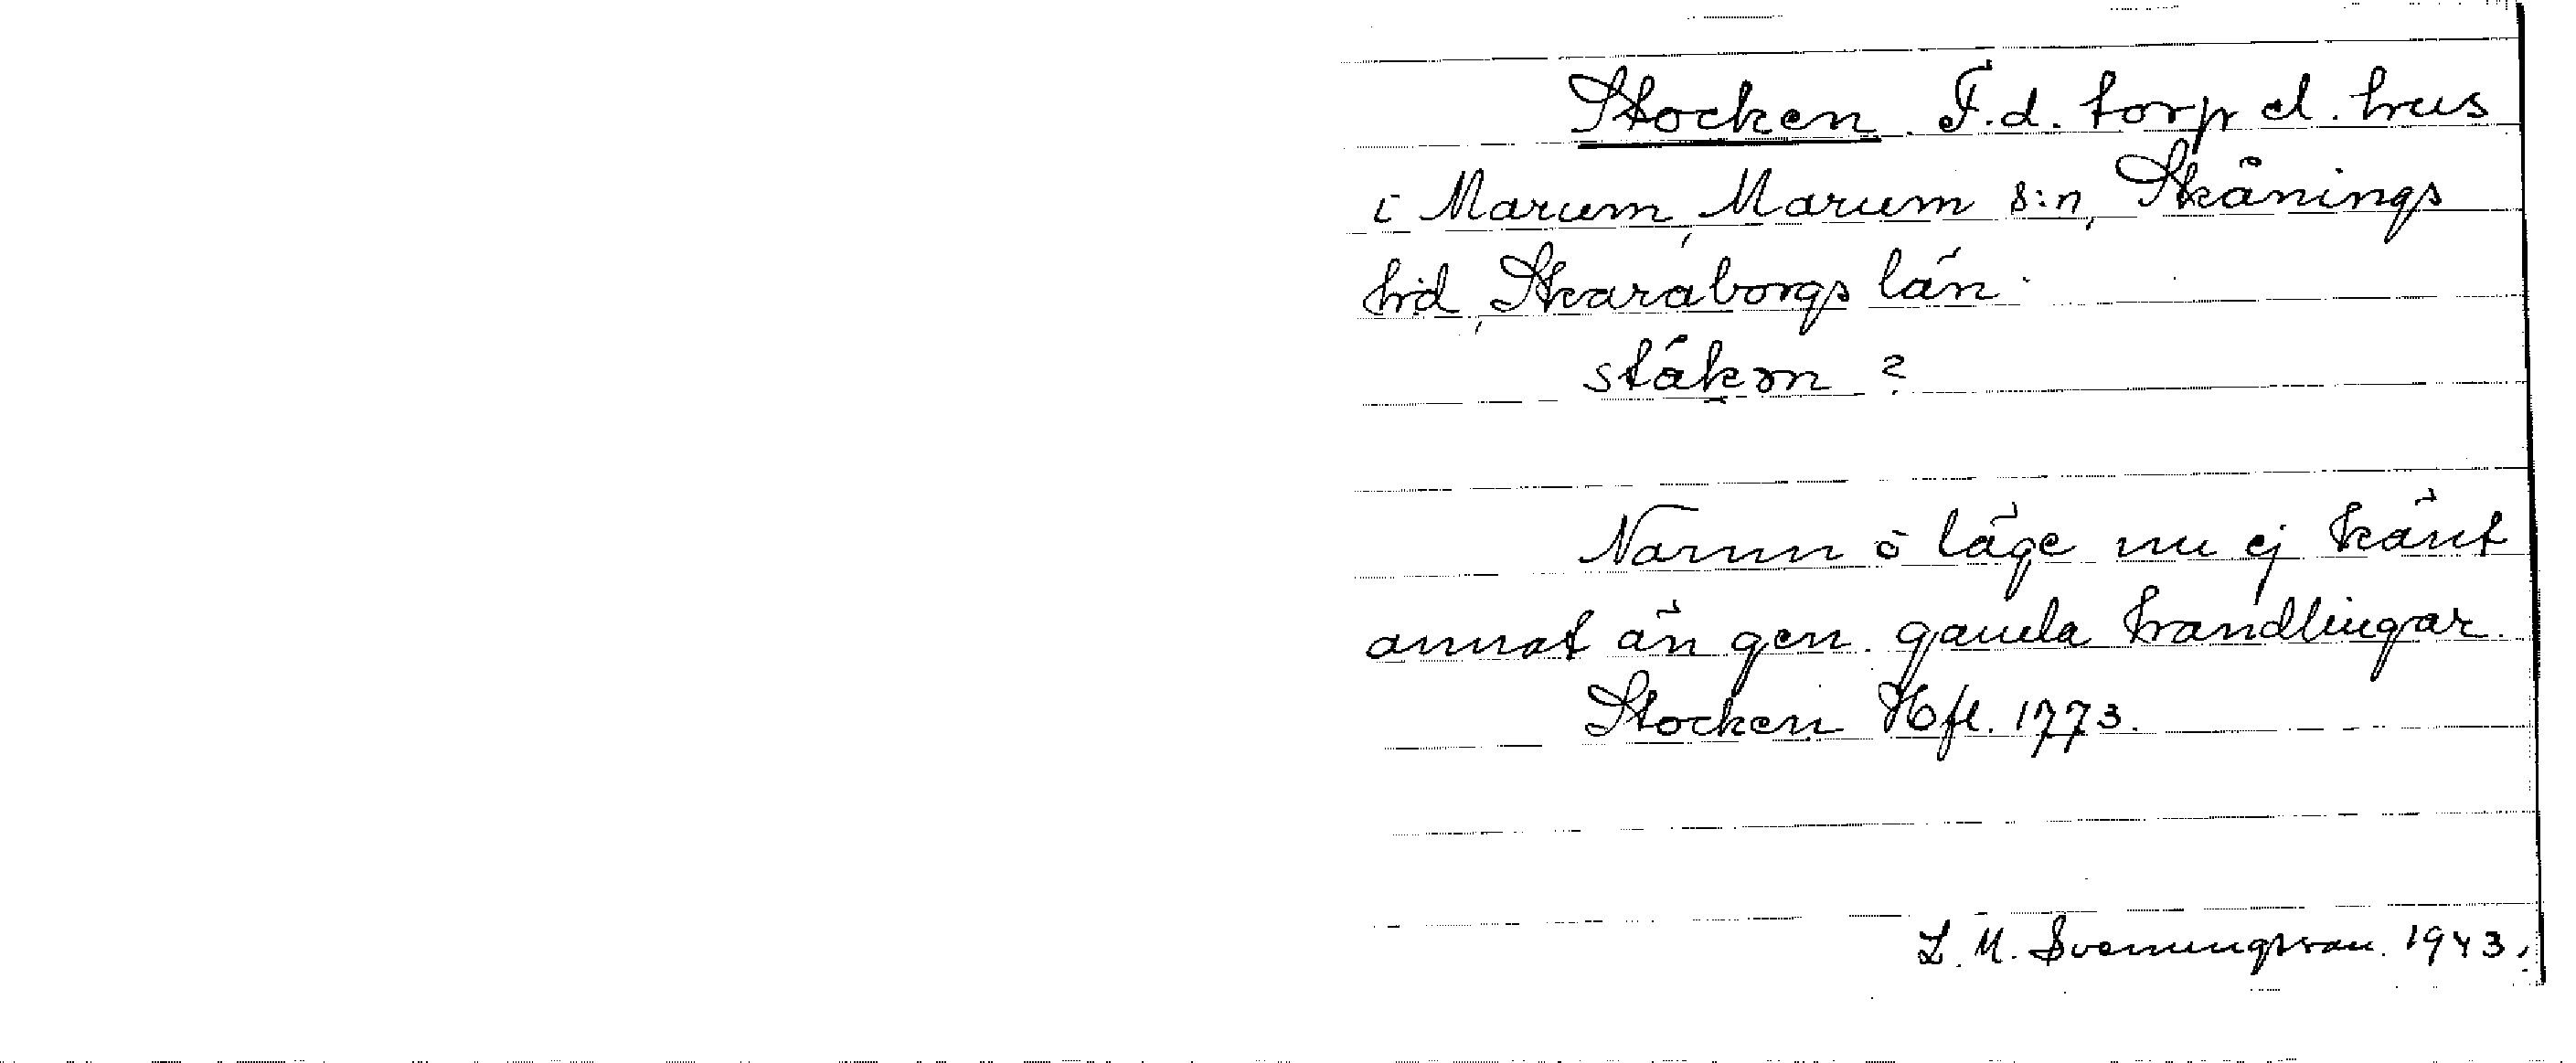 Stocken. F.d. torp el. hus
i Marum, Marum s:n, Skånings
hd, Skaraborgs län.
ståkɘn ?
Namn o läge nu ej känt
annat än gen. gamla handlingar.
Stocken Hfl. 1773.
L. M. Svenungsson. 1943.